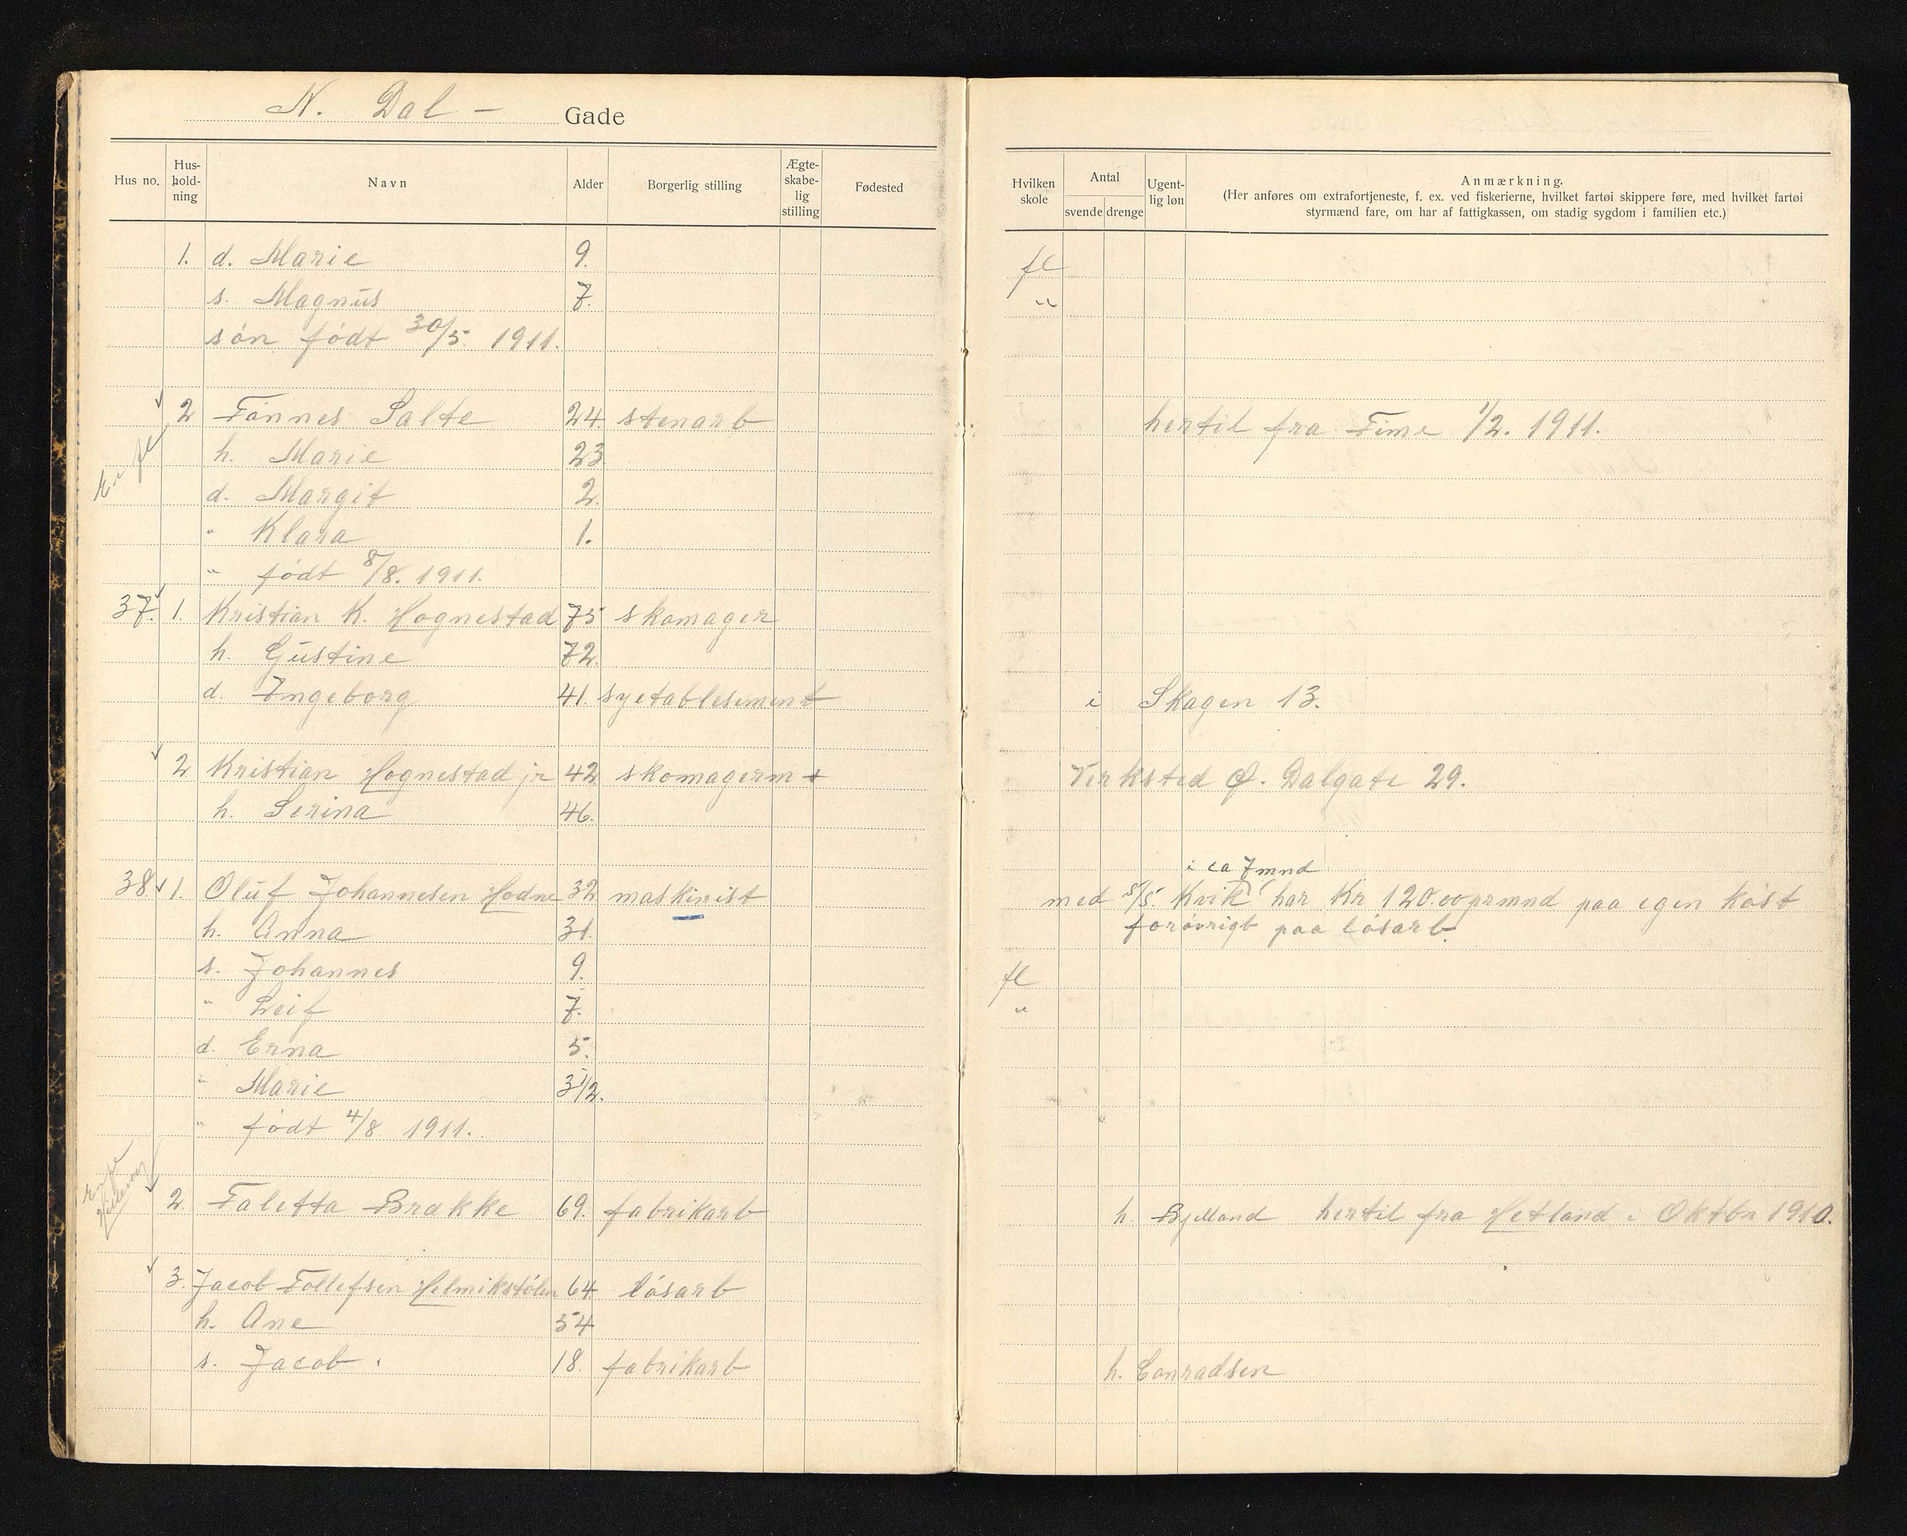 N. Dal - Gade
Hus no. Hus-hold-ning Navn Alder Borgerlig stilling Ægte-skabe-lig stilling Fødested
Hvilken skole Antal svende drenge Ugent-lig løn Anmærkning.
(Her anføres om extrafortjeneste, f. ex. ved fiskerierne, hvilket fartøi skippere føre, med hvilket fartøi
styrmænd fare, om har af fattigkassen, om stadig sygdom i familien etc.)
1. d. Marie 9. fl
s. Magnus 7. "
søn født 30/5. 1911.
2 Tønnes Salte 24. stenarb hertil fra Time 1/2. 1911.
h. Marie 23
d. Margit 2.
" Klara 1.
" født 8/8. 1911.
37. 1. Kristian K. Hognestad 75 skomager
h. Gustine 72.
d. Ingeborg 41. syetablesement i Skagen 13.
2 Kristian Hognestad jr 42 skomagerm + Verksted Ø. Dalgate 29.
h. Serina 46.
i ca 7 mnd
38 1. Oluf Johannesen Hodne 32 maskinist med S/S. Kvik har Kr 120.00 pr mnd paa egen kost
h. Anna 31. forøvrigt paa løsarb.
s. Johannes 9. fl
" Leif 7. "
d. Erna 5.
" Marie 3 1/2.
" født 4/8 1911.
2. Taletta Brakke 69. fabrikarb h. Bjelland hertil fra Hetland i Oktbr 1910.
3. Jacob Tollefsen Helmikstølen 64 løsarb
h. Ane 54
s. Jacob. 18 fabrikarb h. Conradsen